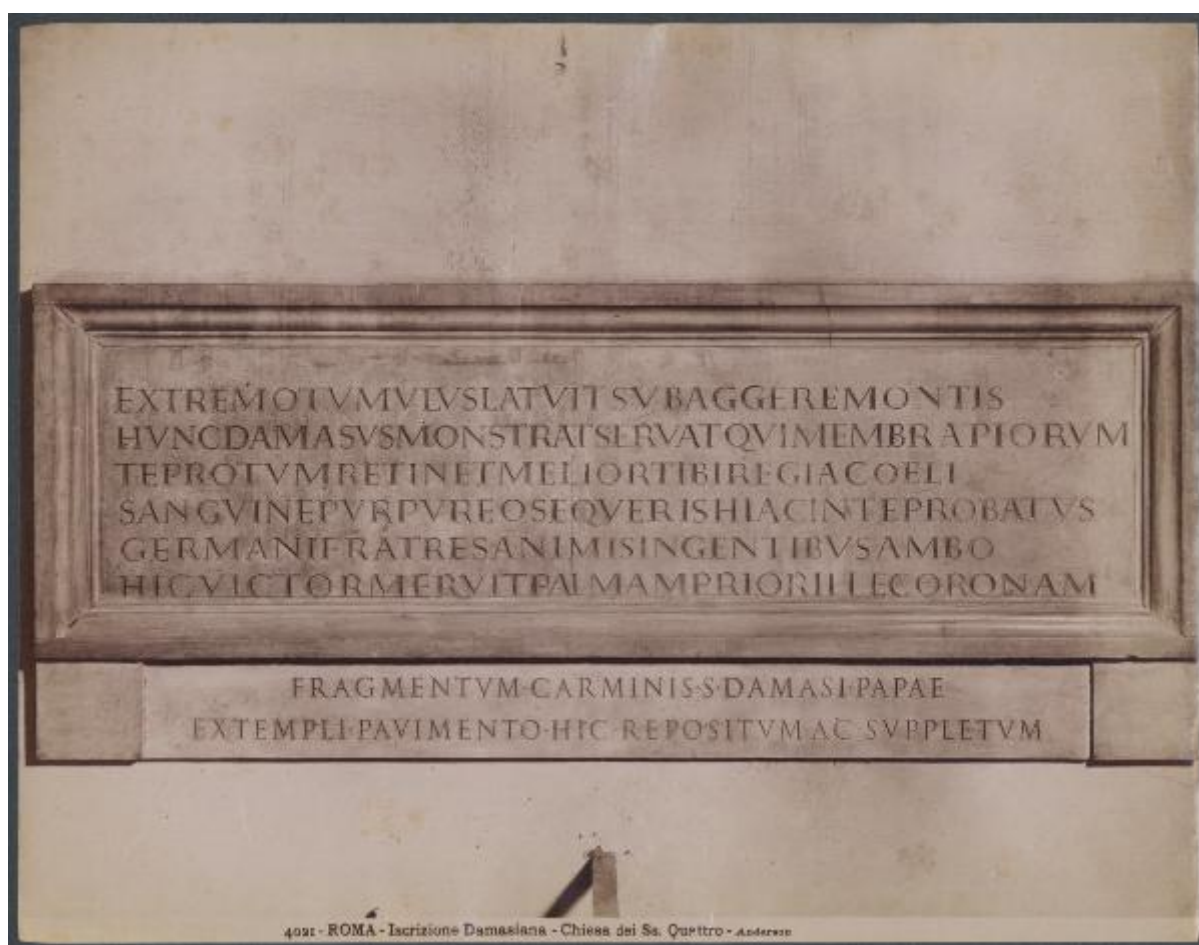 EXTREMOTVMVLVSLATVITSVBAGGEREMONTIS
HVNCDAMASVSMONSTRATSERVATQVIMEMBRAPIORVM
TEPROTVMRETINETMELIORTIBIREGIACOELI
SANGVINEPVRPVREOSEQVERISHIACINTEPROBATVS
GERMANIIFRATRESANIMISINGENTIBVSAMBO
HICVICTORMERVITPALMAMPRIORILLECORONAM
FRAGMENTVM·CARMINIS·S·DAMASI·PAPAE
EX TEMPLI·PAVIMENTO·HIC·REPOSITVM AC SVPPLETVM
4021 - ROMA - Iscrizione Damasiana - Chiesa dei Ss. Quattro - Anderson